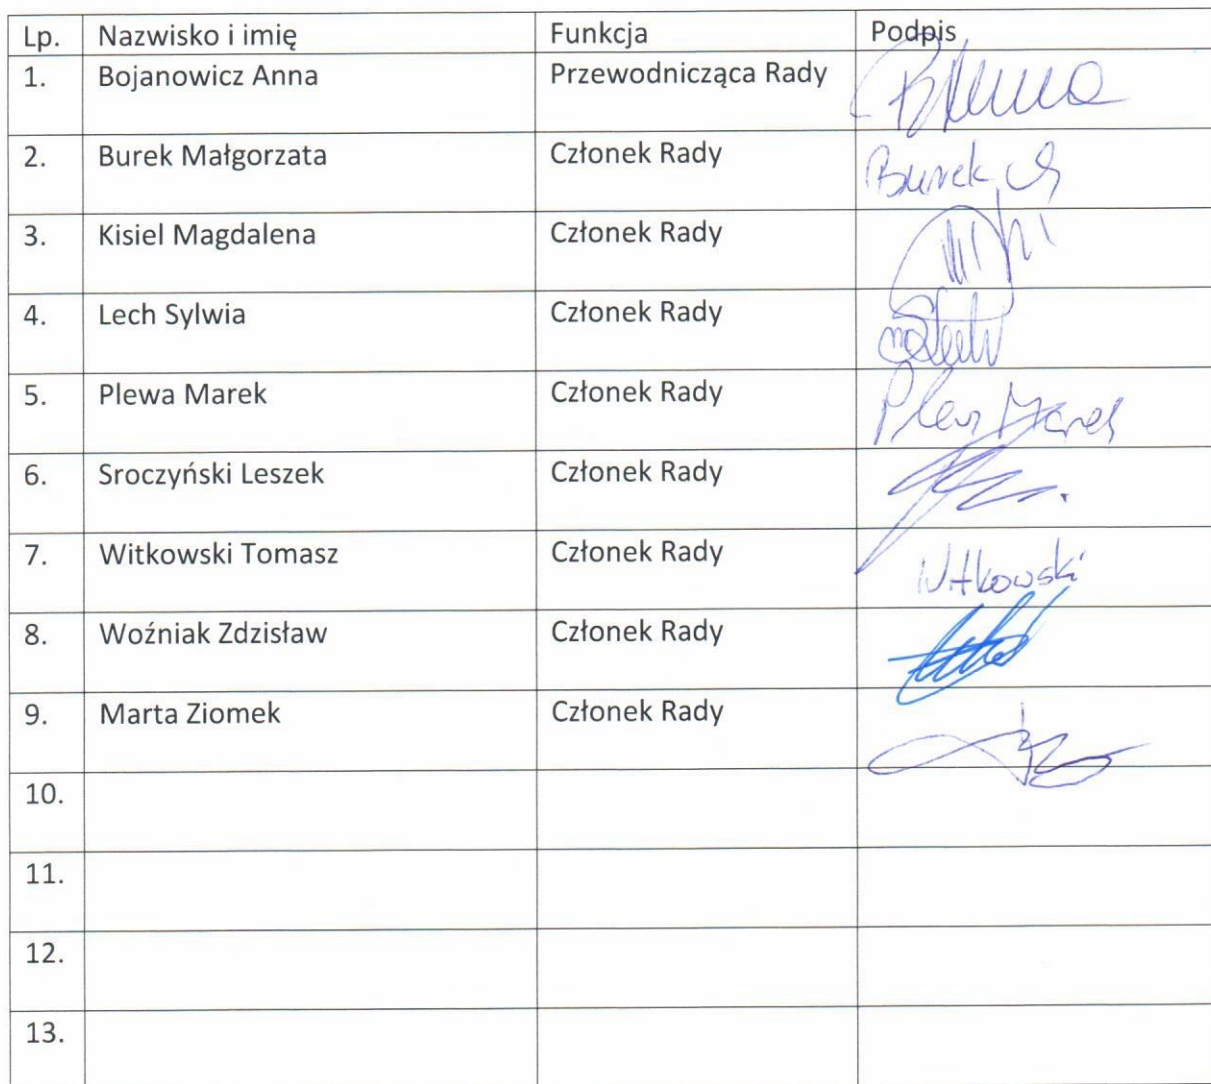 Lp. Nazwisko i imię Funkcja Podpis
1. Bojanowicz Anna Przewodnicząca Rady
2. Burek Małgorzata Członek Rady Burek
3. Kisiel Magdalena Członek Rady
4. Lech Sylwia Członek Rady
5. Plewa Marek Członek Rady
6. Sroczyński Leszek Członek Rady
7. Witkowski Tomasz Członek Rady Witkowski
8. Woźniak Zdzisław Członek Rady
9. Marta Ziomek Członek Rady
10.
11.
12.
13.